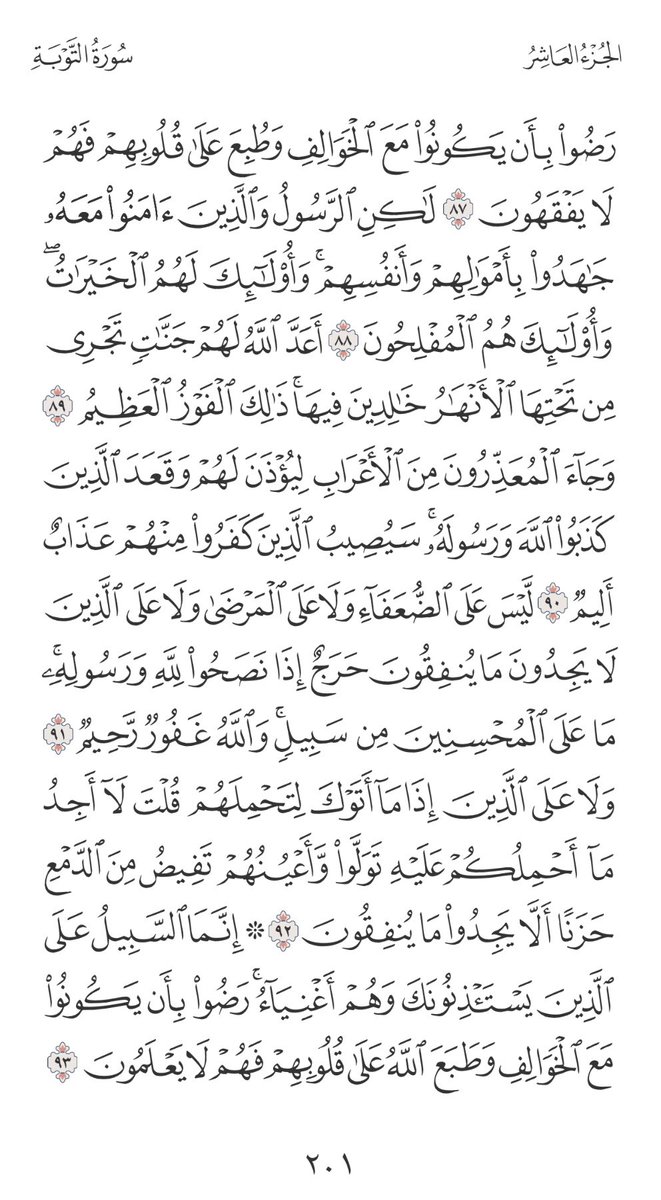 الجُزْءُ العَاشِرُ
سُورَةُ التَّوْبَةِ
رَضُوا۟ بِأَن يَكُونُوا۟ مَعَ ٱلْخَوَالِفِ وَطُبِعَ عَلَىٰ قُلُوبِهِمْ فَهُمْ
لَا يَفْقَهُونَ ٨٧ لَٰكِنِ ٱلرَّسُولُ وَٱلَّذِينَ ءَامَنُوا۟ مَعَهُۥ
جَٰهَدُوا۟ بِأَمْوَٰلِهِمْ وَأَنفُسِهِمْۚ وَأُو۟لَٰٓئِكَ لَهُمُ ٱلْخَيْرَٰتُۖ
وَأُو۟لَٰٓئِكَ هُمُ ٱلْمُفْلِحُونَ ٨٨ أَعَدَّ ٱللَّهُ لَهُمْ جَنَّٰتٍ تَجْرِى
مِن تَحْتِهَا ٱلْأَنْهَٰرُ خَٰلِدِينَ فِيهَاۚ ذَٰلِكَ ٱلْفَوْزُ ٱلْعَظِيمُ ٨٩
وَجَآءَ ٱلْمُعَذِّرُونَ مِنَ ٱلْأَعْرَابِ لِيُؤْذَنَ لَهُمْ وَقَعَدَ ٱلَّذِينَ
كَذَبُوا۟ ٱللَّهَ وَرَسُولَهُۥۚ سَيُصِيبُ ٱلَّذِينَ كَفَرُوا۟ مِنْهُمْ عَذَابٌ
أَلِيمٌ ٩٠ لَّيْسَ عَلَى ٱلضُّعَفَآءِ وَلَا عَلَى ٱلْمَرْضَىٰ وَلَا عَلَى ٱلَّذِينَ
لَا يَجِدُونَ مَا يُنفِقُونَ حَرَجٌ إِذَا نَصَحُوا۟ لِلَّهِ وَرَسُولِهِۦۚ
مَا عَلَى ٱلْمُحْسِنِينَ مِن سَبِيلٍۚ وَٱللَّهُ غَفُورٌ رَّحِيمٌ ٩١
وَلَا عَلَى ٱلَّذِينَ إِذَا مَآ أَتَوْكَ لِتَحْمِلَهُمْ قُلْتَ لَآ أَجِدُ
مَآ أَحْمِلُكُمْ عَلَيْهِ تَوَلَّوا۟ وَّأَعْيُنُهُمْ تَفِيضُ مِنَ ٱلدَّمْعِ
حَزَنًا أَلَّا يَجِدُوا۟ مَا يُنفِقُونَ ٩٢ ۞ إِنَّمَا ٱلسَّبِيلُ عَلَى
ٱلَّذِينَ يَسْتَـْٔذِنُونَكَ وَهُمْ أَغْنِيَآءُۚ رَضُوا۟ بِأَن يَكُونُوا۟
مَعَ ٱلْخَوَالِفِ وَطَبَعَ ٱللَّهُ عَلَىٰ قُلُوبِهِمْ فَهُمْ لَا يَعْلَمُونَ ٩٣
٢٠١